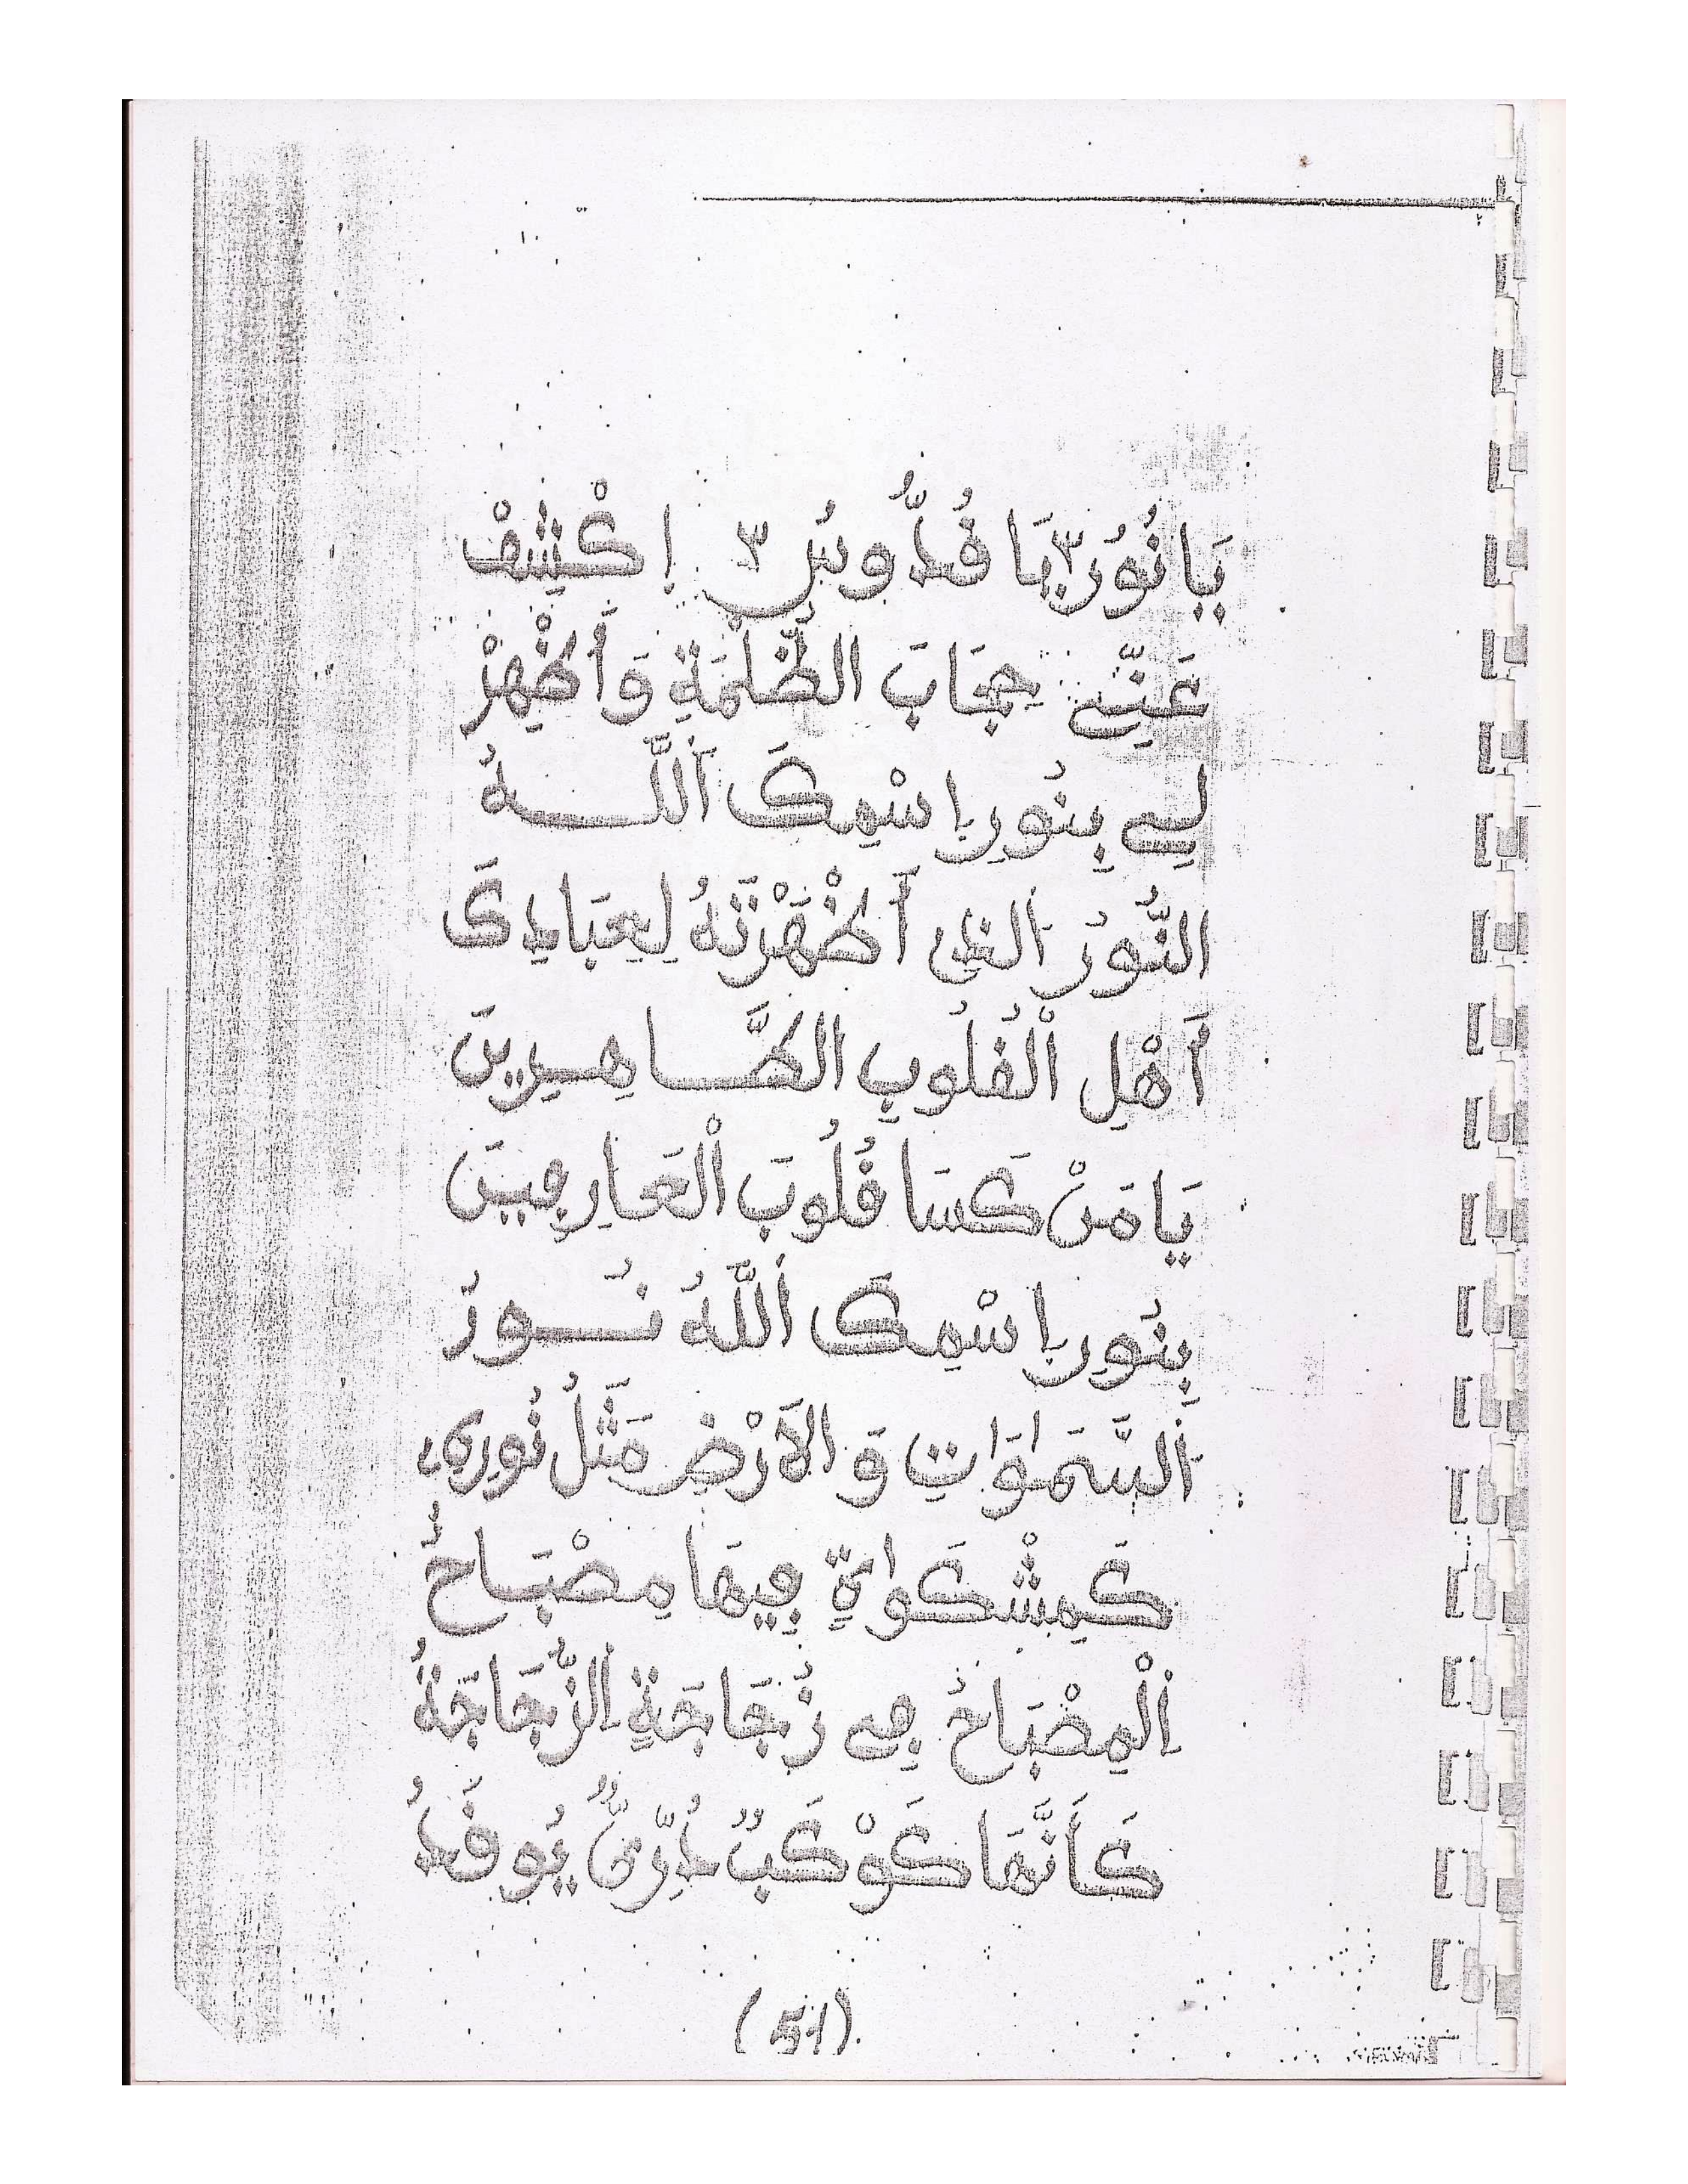 يَا نُورُ ٣ يَا قُدُّوسُ ٣ إِكْشِفْ
عَنِّے حِجَابَ الظُّلْمَةِ وَأَظْهِرْ
لِے بِنُورِ إِسْمِكَ اَللَّـهُ
النُّورُ الذِى أَظْهَرْتَهُ لِعِبَادِكَ
أَهْلِ الْقُلُوبِ الطَّـاهِـرِينَ
يَا مَنْ كَسَا قُلُوبَ الْعَارِفِينَ
بِنُورِ إِسْمِكَ اَللَّهُ نُـورُ
اَلسَّمَٰوَٰتِ وَالأَرْضِ مَثَلُ نُورِهِ
كَمِشْكَوٰةٍ فِيهَا مِصْبَـاحٌ
اِلْمِصْبَاحُ فِى زُجَاجَةٍ اِلزُّجَاجَةُ
كَأَنَّهَا كَوْكَبٌ دُرِّىٌّ يُوقَدُ
(51)